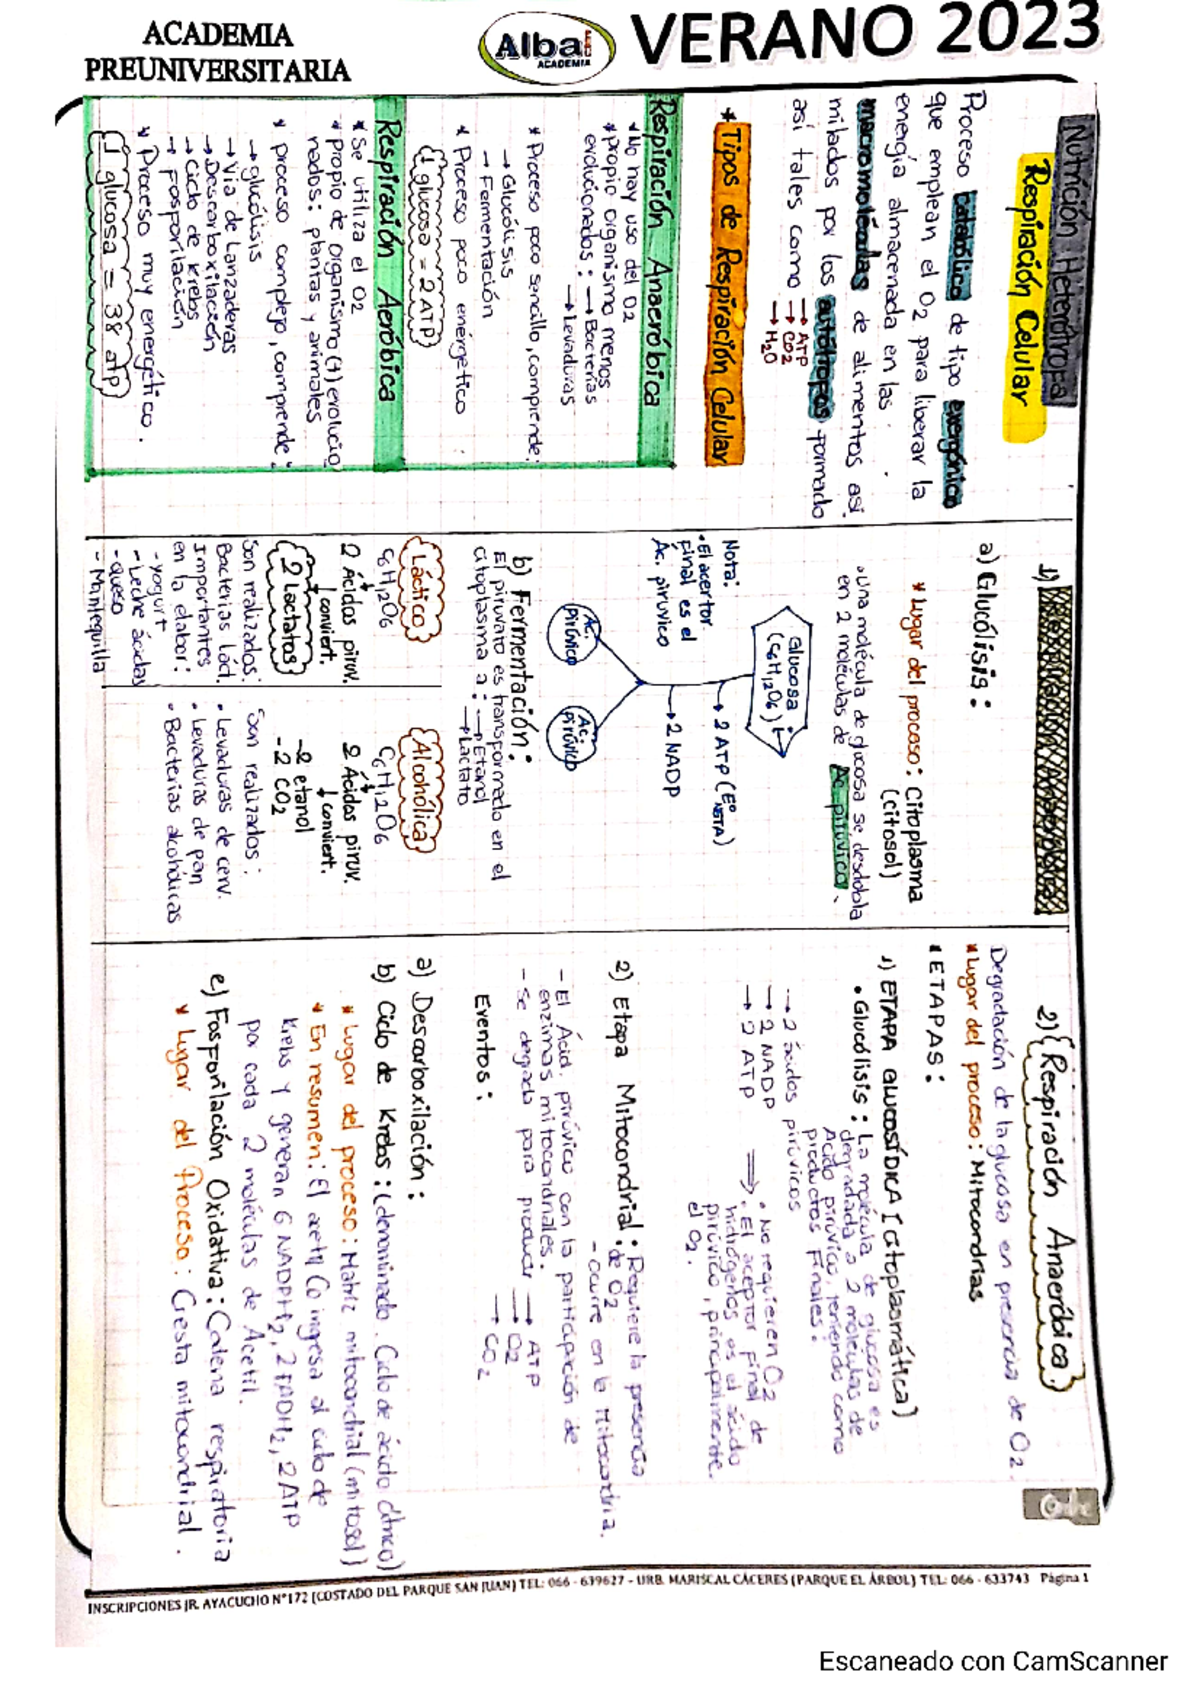 ACADEMIA
PREUNIVERSITARIA
Alba
ACADEMIA
VERANO 2023
Nutrición Heterótropa
Respiración Celular
Proceso Catabólico de tipo exergónico
que emplean el O2 para liberar la
energía almacenada en las
macromoléculas de alimentos asi
milados por los autótropos formado
así tales como → ATP
→ CO2
→ H2O
* Tipos de Respiración Celular
Respiración Anaeróbica
* No hay uso del O2
* propio organismo menos
evolucionados: → Bacterias
→ Levaduras
* Proceso poco sencillo, comprende:
→ Glucólisis
→ Fermentación
* Proceso poco energético
1 glucosa = 2 ATP
Respiración Aeróbica
* Se utiliza el O2
* propio de Organismo (+) evolucio
nados: plantas y animales
* proceso complejo, comprende:
→ glucólisis
→ Vía de Lanzaderas
→ Descarboxilación
→ Ciclo de krebs
→ Fosforilación
* Proceso muy energético.
1 glucosa = 38 atp
1)
a) Glucólisis:
* Lugar del proceso: Citoplasma
(citosol)
• Una molécula de glucosa se desdobla
en 2 moléculas de Ac. pirúvico.
Glucosa
(C6H12O6)
→ 2 ATP (E° NETA)
→ 2 NADP
Nota:
• El acertor
final es el
Ác. pirúvico
Ac.
pirúvico
Ac.
pirúvico
b) Fermentación:
El piruvato es transformado en el
citoplasma a: → Etanol
→ Lactato
Láctico
C6H12O6
2 Ácidos piruv.
↓ conviert.
2 Lactatos
Son realizados:
Bacterias láct.
Importantes
en la elabor:
- yogurt
- Leche ácida
- queso
- Mantequilla
Alcohólica
C6H12O6
2 Ácidos piruv.
↓ conviert.
- 2 etanol
- 2 CO2
Son realizados:
• Levaduras de cerv.
• Levaduras de pan
• Bacterias alcohólicas
2) Respiración Anaeróbica.
Degradación de la glucosa en presencia de O2.
* Lugar del proceso: Mitocondrias
* ETAPAS:
1) ETAPA GLUCOSÍDICA [citoplasmática]
• Glucólisis: La molécula de glucosa es
degradada a 2 moléculas de
Acido pirúvico, teniendo como
productos Finales:
→ 2 ácidos pirúvicos
→ 2 NADP
→ 2 ATP
⟹ • No requieren O2
• El aceptor final de
hidrógenos es el ácido
pirúvico, principalmente.
el O2.
2) Etapa Mitocondrial: Requiere la presencia
de O2
- ocurre en la Mitocondria.
- El Ácid. pirúvico con la participación de
enzimas mitocondriales.
- Se degrada para producir → ATP
→ O2
→ CO2
Eventos:
a) Descarboxilación:
b) Ciclo de Krebs: (denominado. Ciclo de ácido cítrico)
* Lugar del proceso: Matriz mitocondrial (mitosol)
* En resumen: El acetil Co ingresa al ciclo de
Krebs y generan 6 NADPH2, 2 FADH2, 2 ATP
por cada 2 moléculas de Acetil.
c) Fosforilación Oxidativa: Cadena respiratoria
* Lugar del Proceso: Cresta mitocondrial.
INSCRIPCIONES JR. AYACUCHO N°172 (COSTADO DEL PARQUE SAN JUAN) TEL: 066 - 639627 - URB. MARISCAL CÁCERES (PARQUE EL ÁRBOL) TEL: 066 - 633743 Página 1
Escaneado con CamScanner